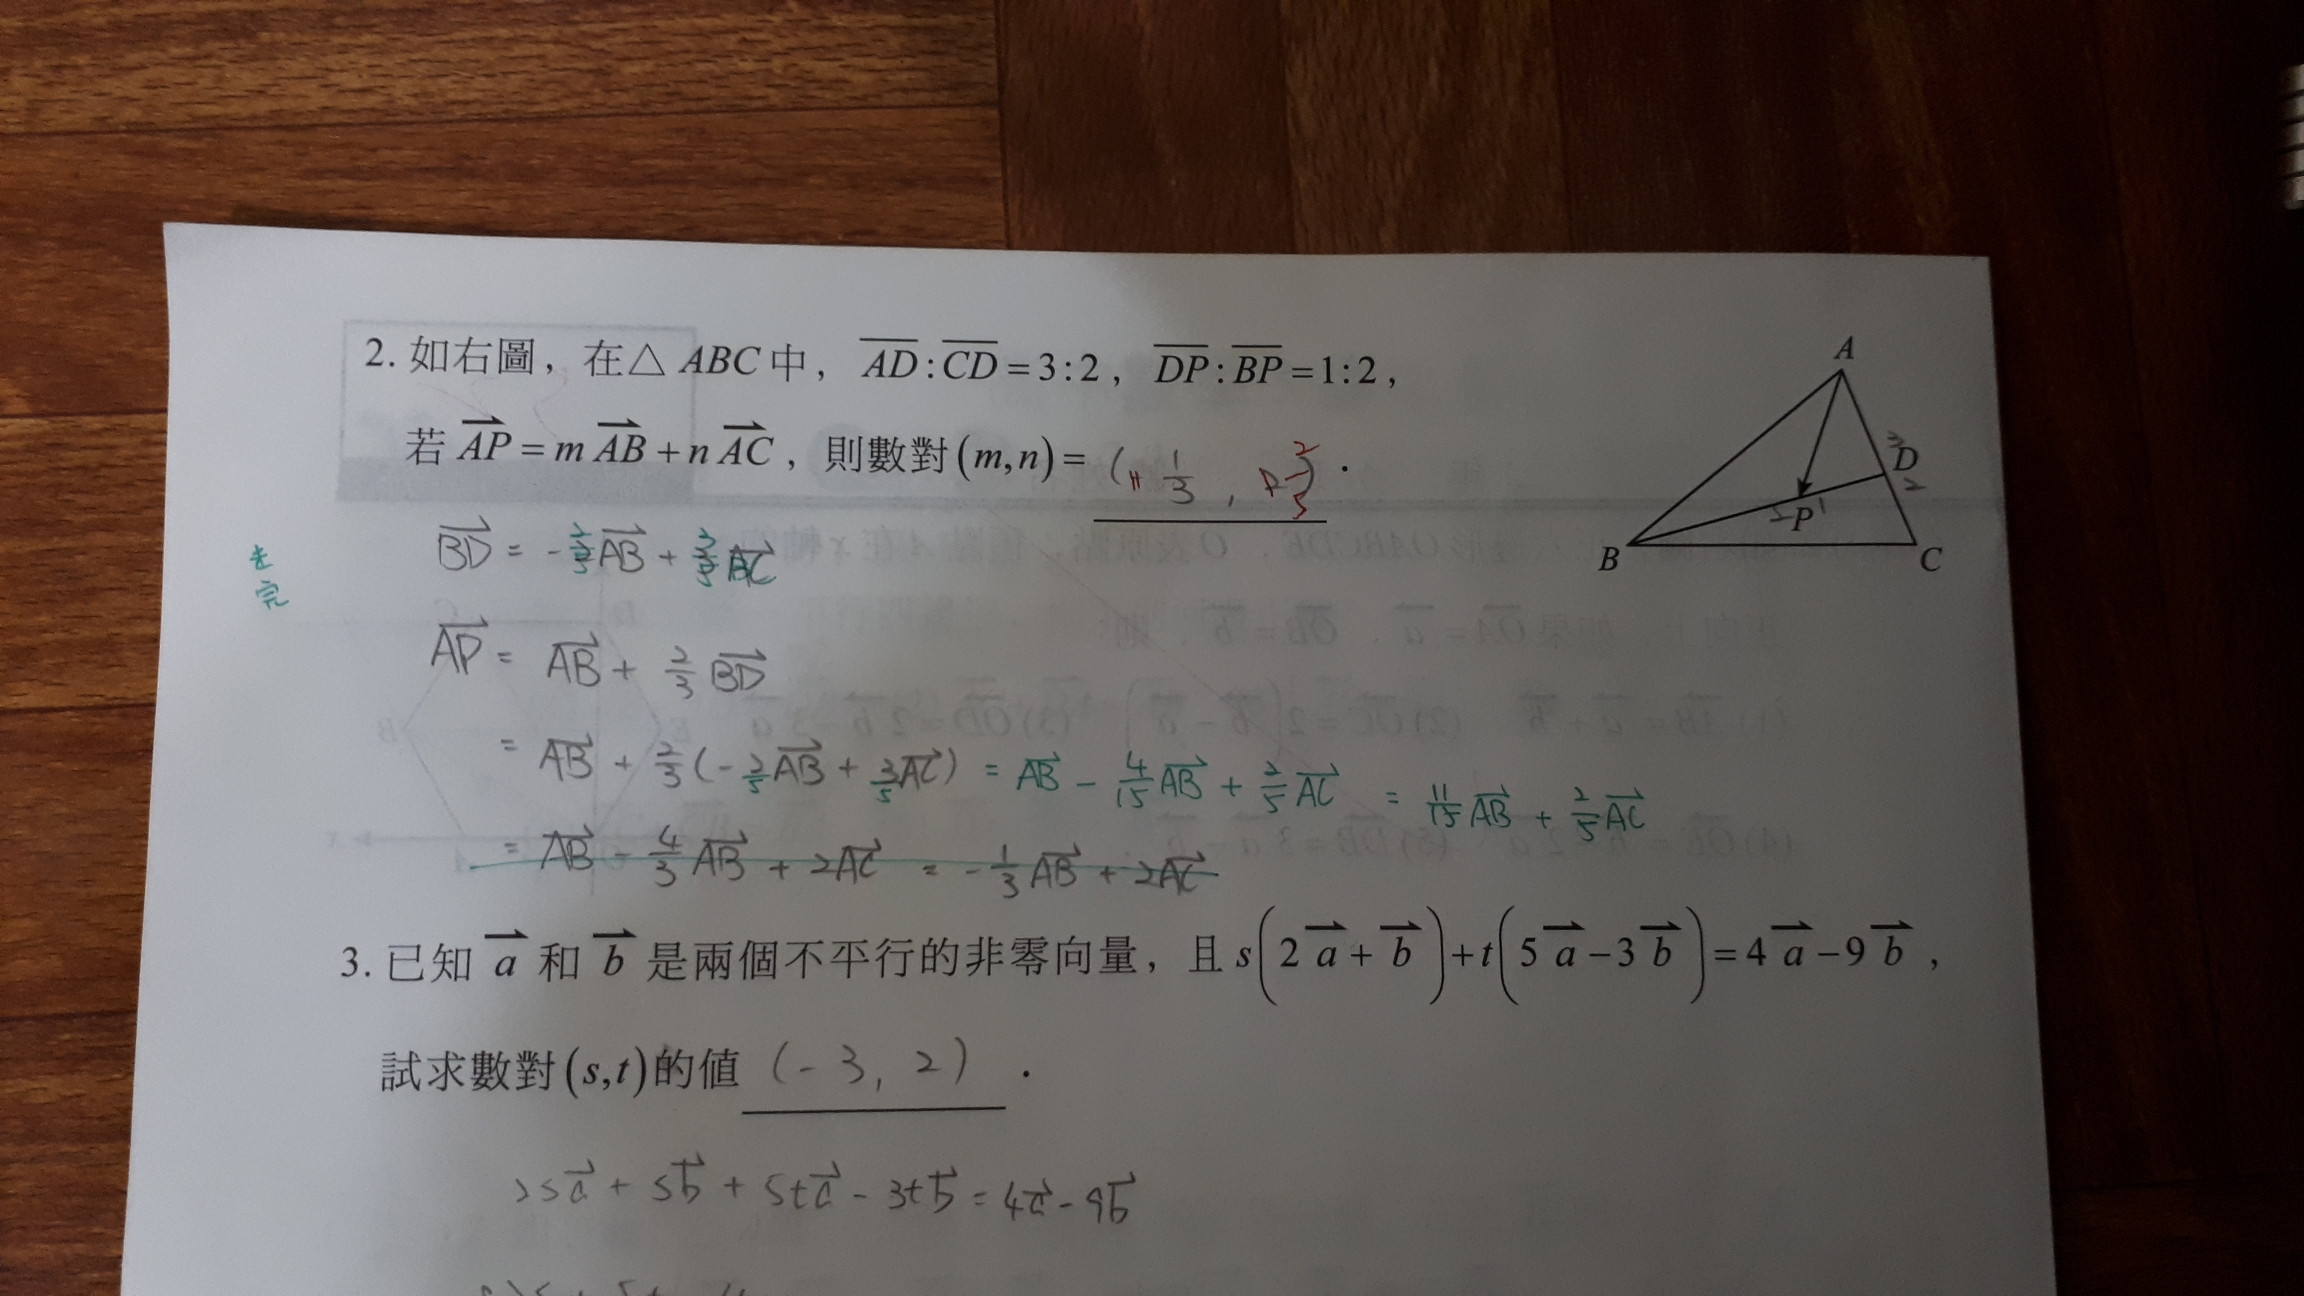 2. 如右圖，在△ABC中，AD:CD=3:2，DP:BP=1:2，
若AP=mAB+nAC，則數對(m,n)= (1/3, 2/5).
A
3
D
2
2 P 1
B
C
走完
BD = -2/5 AB + 3/5 AC
AP = AB + 2/3 BD
= AB + 2/3(-2/5 AB + 3/5 AC) = AB - 4/15 AB + 2/5 AC = 11/15 AB + 2/5 AC
= AB - 4/3 AB + 2AC = -1/3 AB + 2AC
3. 已知a和b是兩個不平行的非零向量，且s(2a+b)+t(5a-3b)=4a-9b，
試求數對(s,t)的值 (-3, 2).
2sa + sb + 5ta - 3tb = 4a - 9b